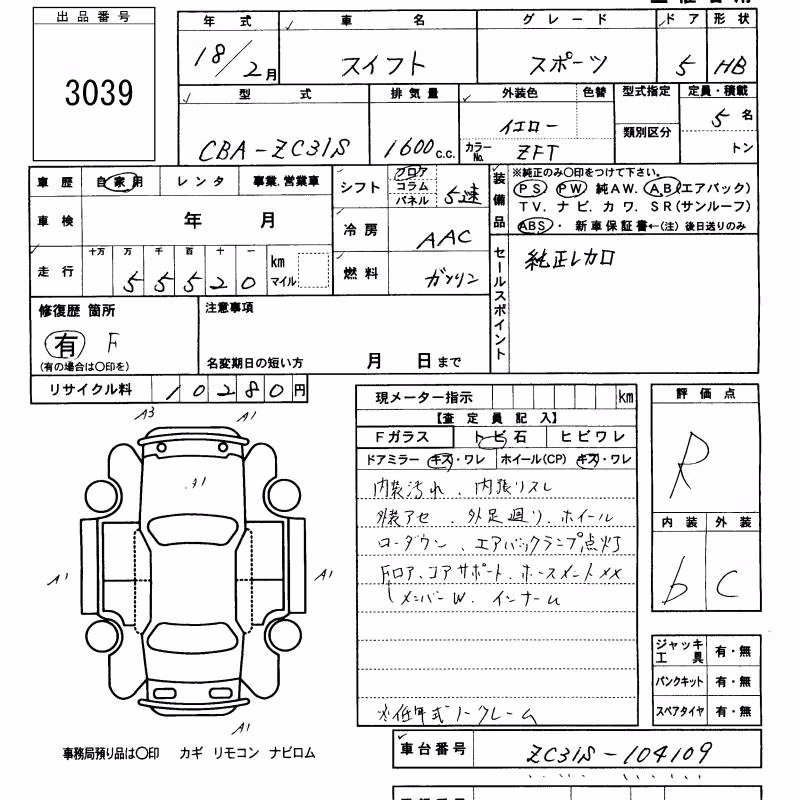 出品番号
3039
年式 車名 グレード ドア 形状
18/2月 スイフト スポーツ 5 HB
型式 排気量 外装色 色替 型式指定 定員・積載
CBA-ZC31S 1600c.c. イエロー 類別区分 5名
カラーNo. ZFT トン
車歴 自家用 レンタ 事業.営業車
シフト フロア コラム パネル 5速
装備品 ※純正のみ〇印をつけて下さい。
PS PW 純AW. A.B(エアバック)
TV. ナビ. カワ. SR(サンルーフ)
ABS・ 新車保証書←(注) 後日送りのみ
車検 年 月
冷房 AAC
走行 十万 万 千 百 十 一
55520 km マイル
燃料 ガソリン
セールスポイント 純正レカロ
修復歴 箇所
有 F
(有の場合は〇印を)
注意事項
名変期日の短い方 月 日まで
リサイクル料 10280円
現メーター指示 km
【査定員記入】
Fガラス トビ石 ヒビワレ
ドアミラー キズ・ワレ ホイール(CP) キズ・ワレ
内装汚れ、内張リスレ
外装アセ、外足廻り、ホイール
ローダウン、エアバックランプ点灯
Fロア、コアサポート、ホースメントメX
メンバーW、インナーム
※低年式ノークレーム
評価点
R
内装 外装
b C
ジャッキ工具 有・無
パンクキット 有・無
スペアタイヤ 有・無
A3 A1
A1
A1 A1
A1
事務局預り品は〇印 カギ リモコン ナビロム
車台番号 ZC31S-104109